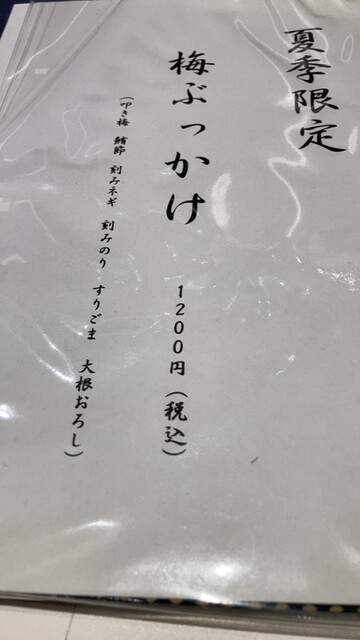 夏季限定
梅ぶっかけ 1200円(税込)
(叩き梅 鰹節 刻みネギ 刻みのり すりごま 大根おろし)